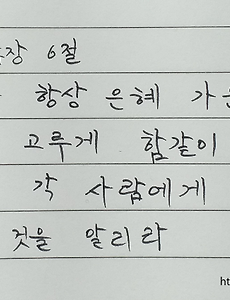 장 6절
항상 은혜 가
고루게 함같이
각 사람에게
것을 알리라